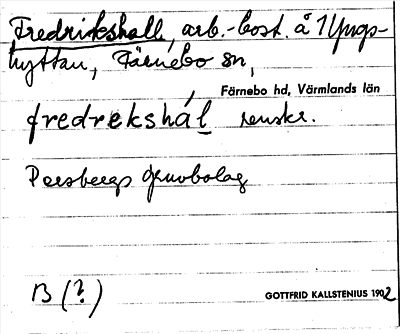 Fredrikshall, arb.-bost. å Yngs-
hyttan, Färnebo sn,
Färnebo hd, Värmlands län
fredrekshál renskr.
Persbergs gruvbolag
B (?)
GOTTFRID KALLSTENIUS 1902